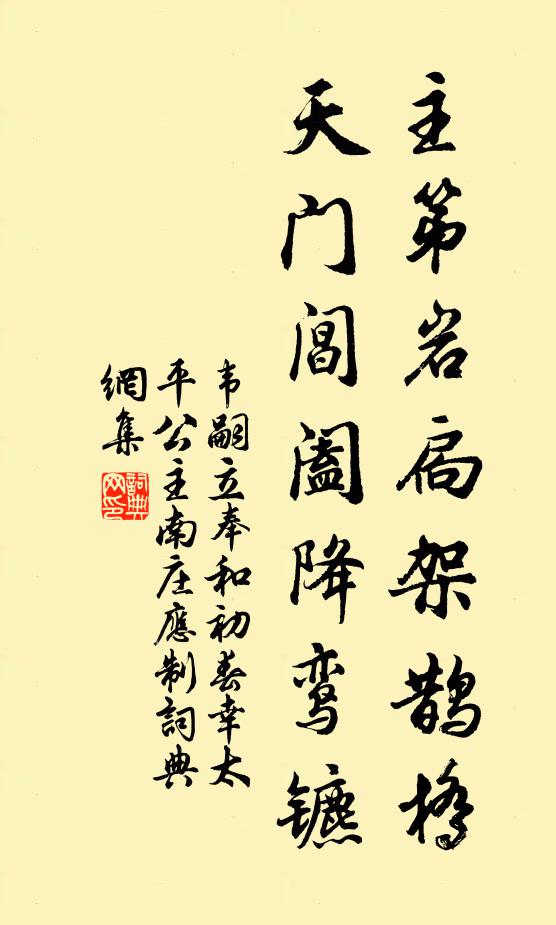 主第岩扃架鹊橋
天门阊阖降鸾镳
韦嗣立奉和初春幸太
平公主南庄應制詞典
網集
詞典
网印